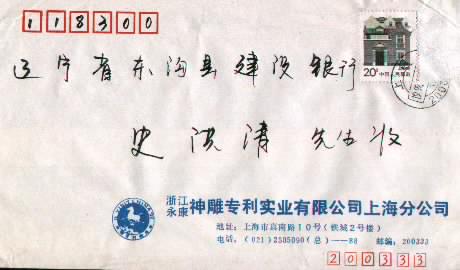 118300
辽宁省东沟县建设银行
20分 中国人民邮政
史洪清 先生收
浙江永康 神雕专利实业有限公司上海分公司
地址：上海市真南路10号（铁城2号楼）
电话：(021) 2505090（总）—88 邮编：200333
200333